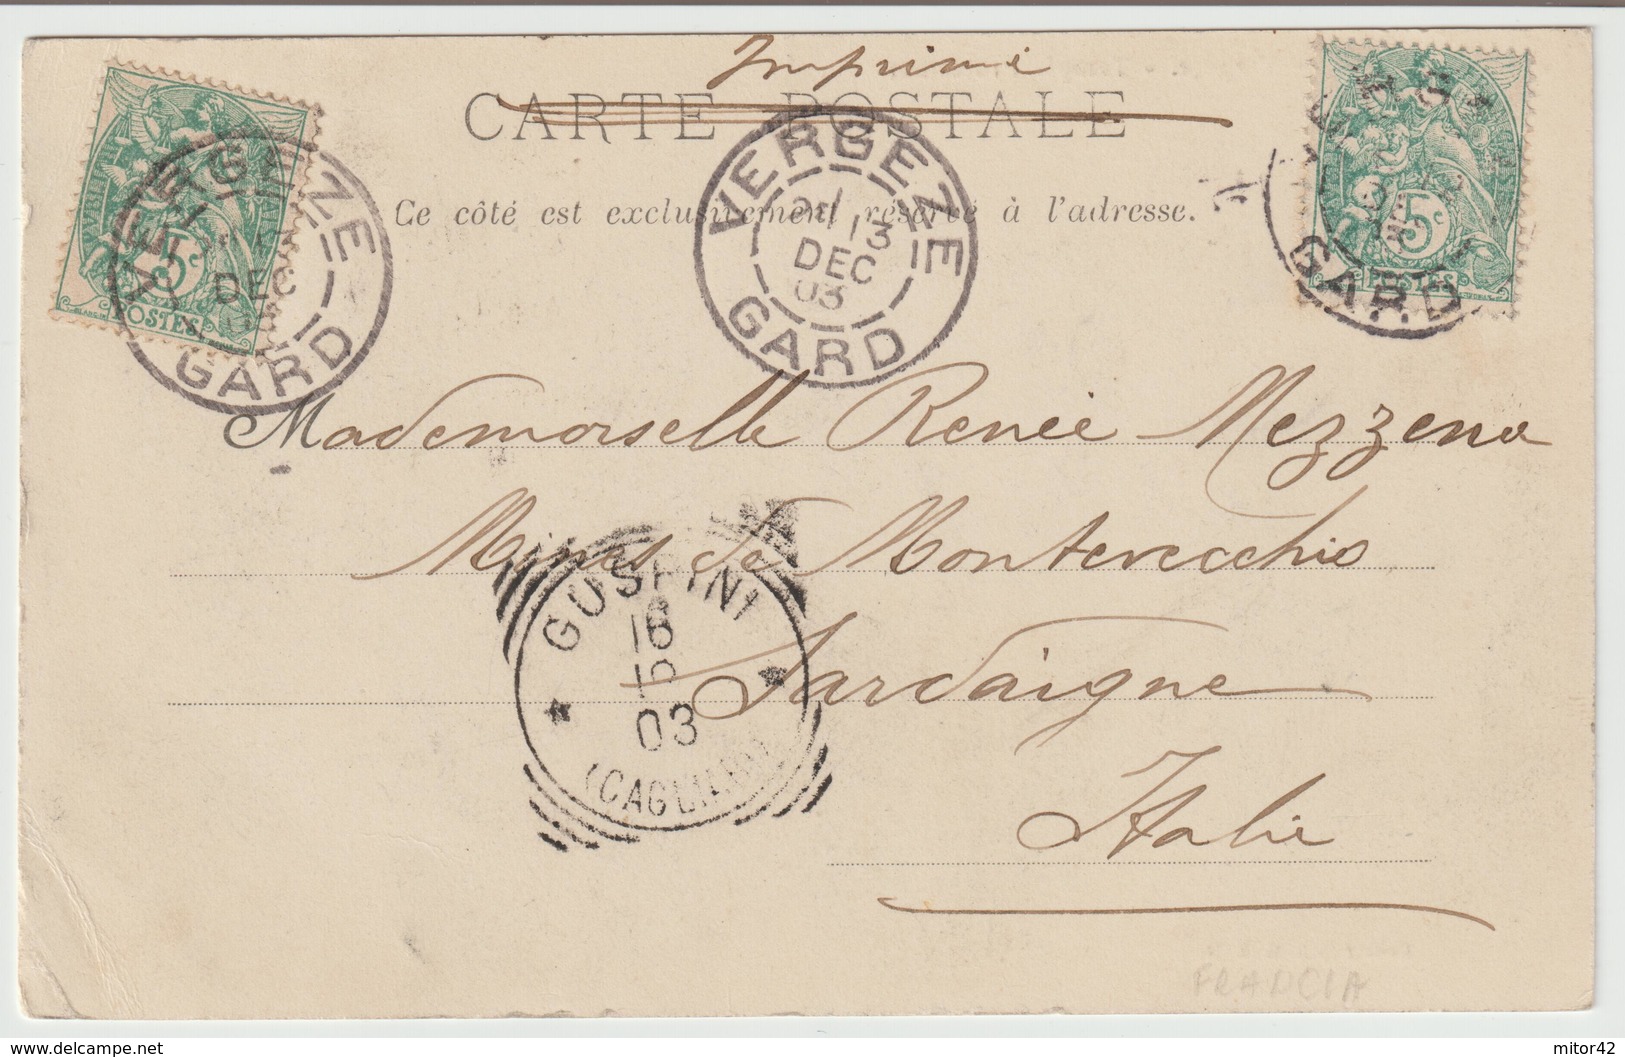 Imprimé
CARTE POSTALE
Ce côté est exclusivement réservé à l'adresse.
VERGEZE
DEC
GARD
5c
POSTES
VERGEZE
13
DEC
03
GARD
GARD
5c
POSTES
Mademoiselle Renée Mezzena
Mines de Montevecchio
Sardaigne
Italie
GUSPINI
16
03
(CAGLIARI)
FRANCIA
delcampe.net
mitor42